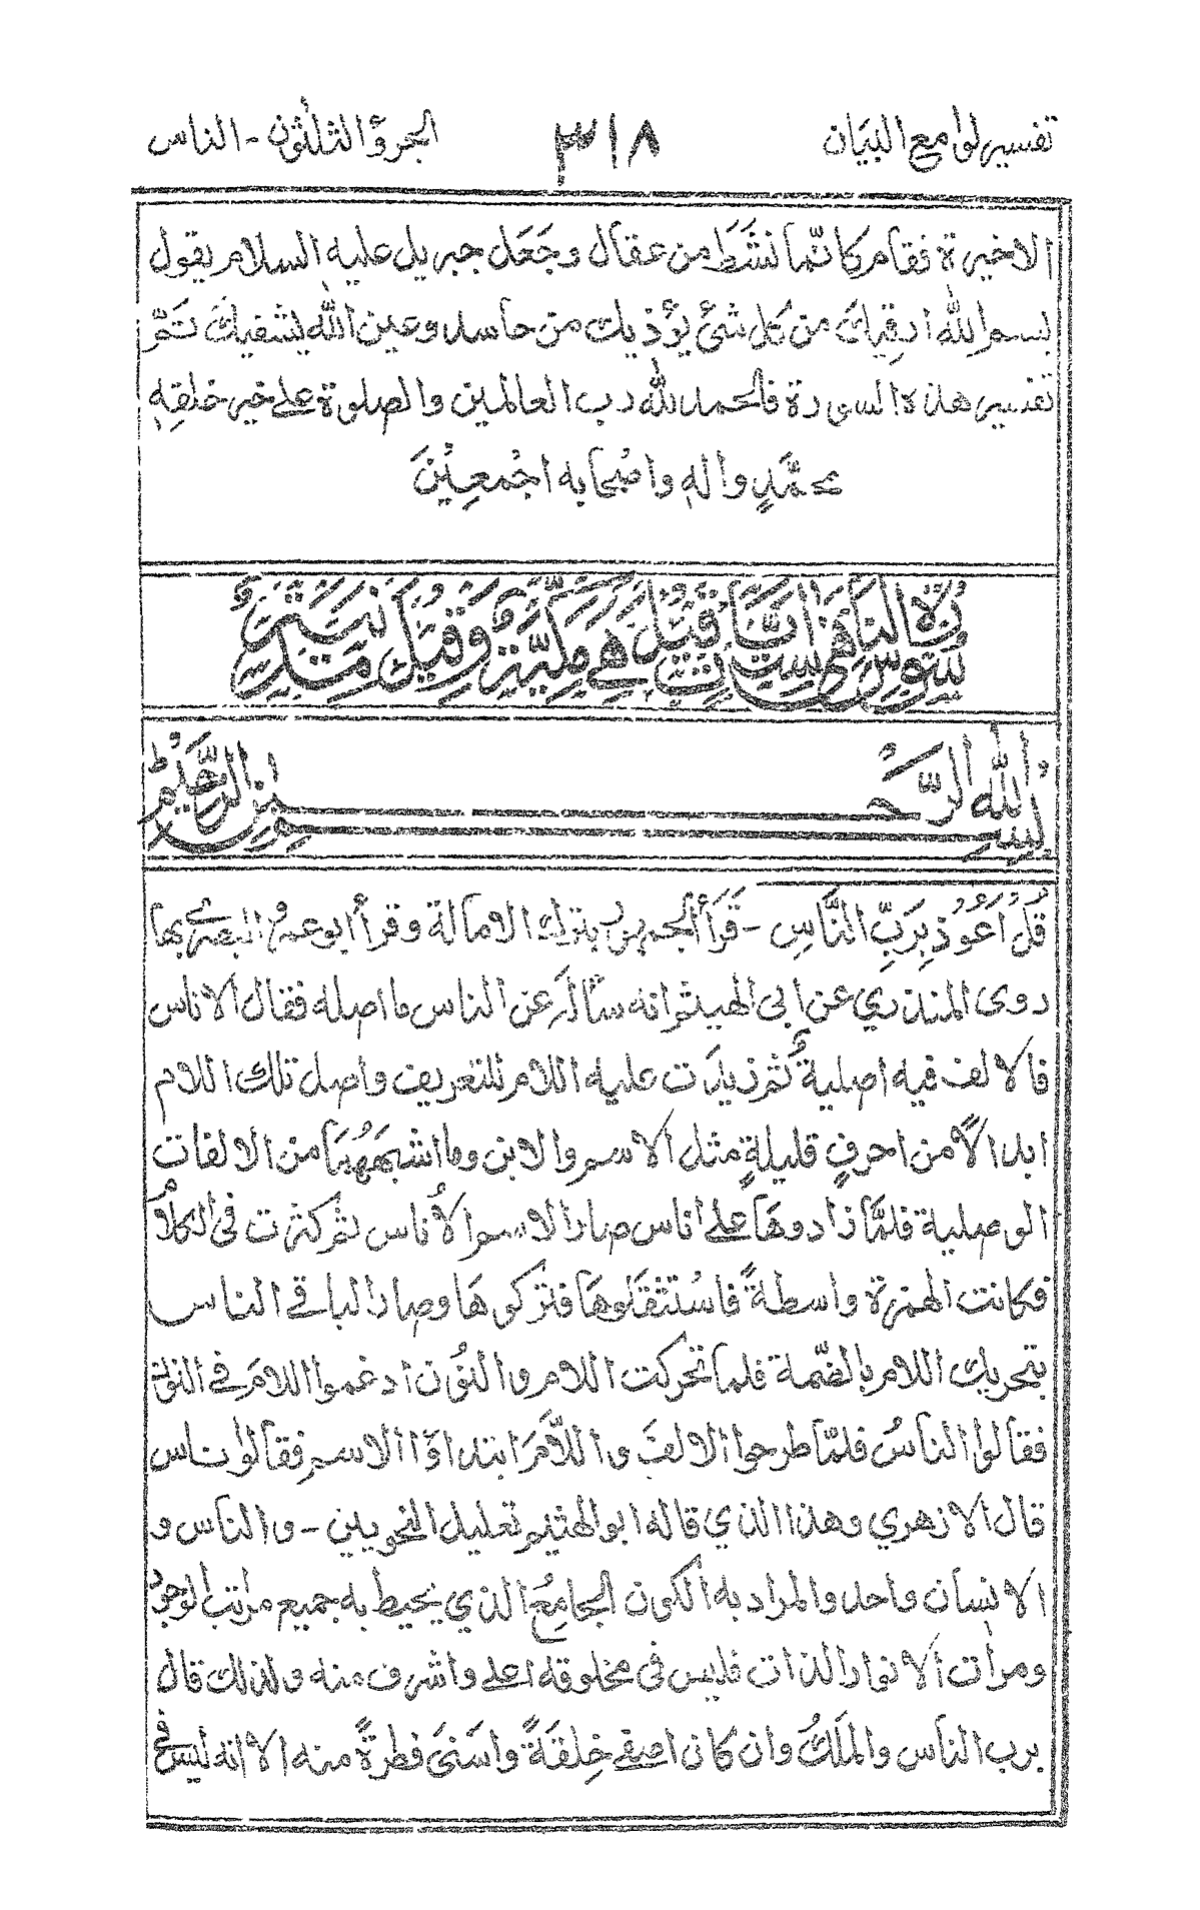 تفسير لوامع البيان ٣١٨ الجزؤ الثلثون - الناس
الاخيرة فقام كانّما نشط من عقال وجعل جبريل عليه السلام يقول
بسم الله ارقيك من كل شئ يؤذيك من حاسد وعين الله يشفيك تمّ
تفسير هذه السورة فالحمد لله رب العالمين والصلوة على خير خلقه
محمّد واله واصحابه اجمعين
سورة الناس وهي ست ايات قيل هي مكية وقيل مدنية
بسم الله الرحمن الرحيم
قُلْ اَعُوْذُ بِرَبِّ النَّاسِ - قرأ الجمهور بترك الامالة وقرأ ابو عمرو البصري بها
روى المنذري عن ابى الهيثم انه سأله عن الناس ما اصله فقال الاناس
فالالف فيه اصلية ثم زيدت عليه اللام للتعريف واصل تلك اللام
ابدالًا من احرفٍ قليلةٍ مثل الاسم والابن وما اشبهها من الالفات
الوصلية فلمّا زادوها على اناس صار الاسم الأناس ثم كثرت فى الكلام
فكانت الهمزة واسطةً فاستثقلوها فتركوها وصار الباقي الناس
بتحريك اللام بالضمّة فلما تحركت اللام والنون ادغموا اللام في النون
فقالوا الناسُ فلمّا طرحوا الالف واللّام ابتداؤا الاسم فقالوا ناس
قال الازهري وهذا الذي قاله ابو الهثيم تعليل النحويين - والناس و
الانسان واحد والمراد به الكون الجامع الذي يحيط به جميع مراتب الوجود
ومرات الانوار الذات فليس فى مخلوقه اعلى واشرف منه ولذلك قال
برب الناس والملكُ وان كان اصفى خلقةً واسنى فطرةً منه الا انه ليس في